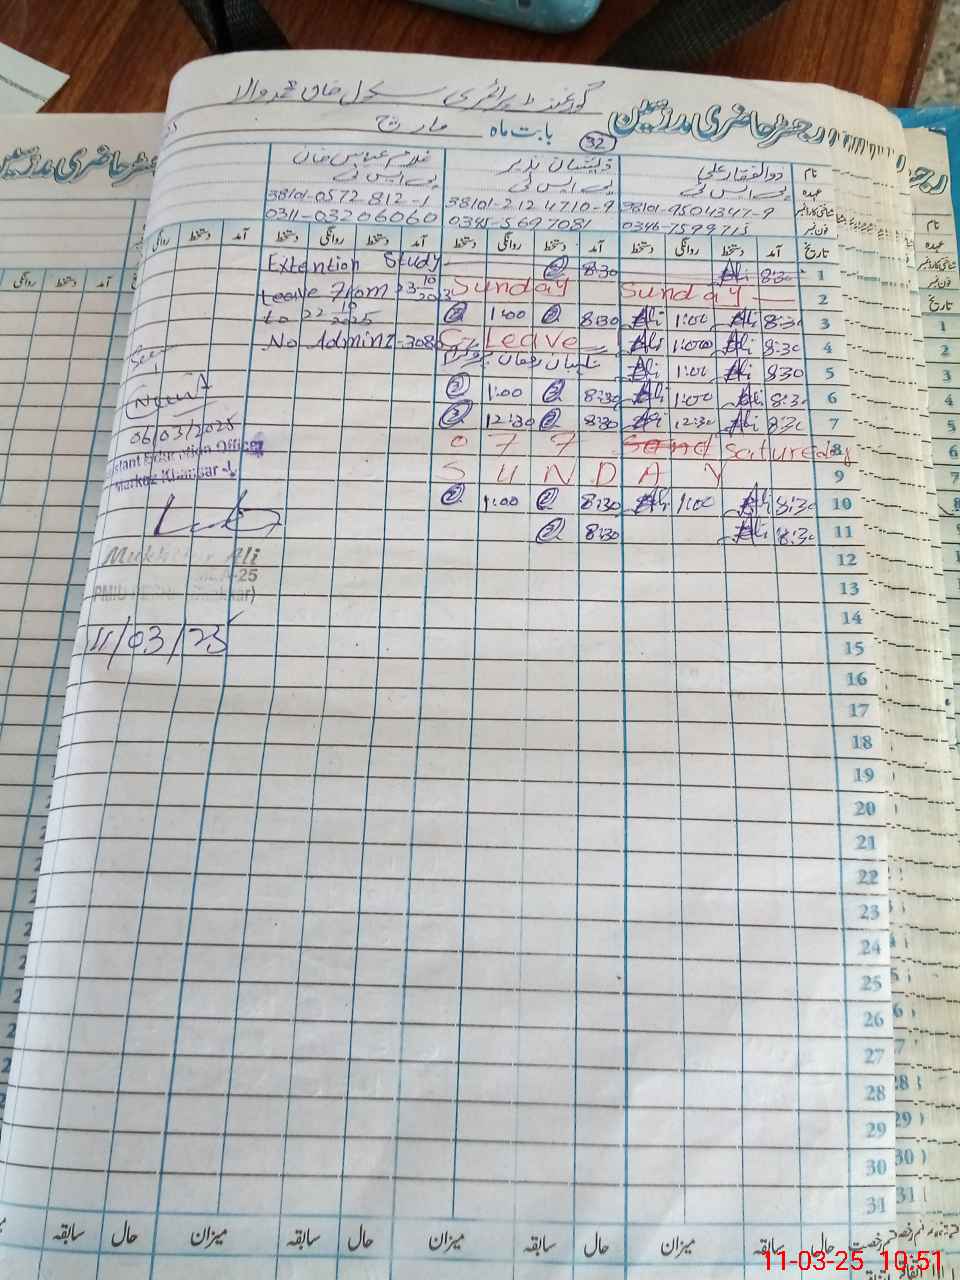 گورنمنٹ پرائمری سکول خان محمد والا
رجسٹر حاضری مدرسین
32
بابت ماہ مارچ
نام ذوالفقار علی ذیشان نذیر غلام عباس خان
عہدہ پی ایس ٹی پی ایس ٹی پی ایس ٹی
شناختی کارڈ نمبر 38101-9504347-9 38101-2124710-9 38101-0572812-1
فون نمبر 0346-7599715 0345-5697081 0311-03206060
تاریخ آمد دستخط روانگی دستخط آمد دستخط روانگی دستخط آمد دستخط روانگی دستخط آمد دستخط روانگی
1 8:30 Ali 8:30 Extention Study
2 Sunday Sunday Leave From 23 10 2023
3 8:30 Ali 1:00 Ali 8:30 1:00 to 22 10 2025
4 8:30 Ali 1:00 Ali C. Leave No Admin2-308
5 830 Ali 1:00 Ali
6 8:30 Ali 1:00 Ali 8:30 1:00
7 8:30 Ali 12:30 Ali 8:30 12:30
8 Saturday O F F
9 S U N D A Y
10 8:30 Ali 1:00 Ali 8:30 1:00
11 8:30 Ali 8:30
Seen
06/03/2025
Assistant Education Officer
Markaz Khansar
Mukhtar Ali
11/03/25
12
13
14
15
16
17
18
19
20
21
22
23
24
25
26
27
28
29
30
31
حال سابقہ میزان حال سابقہ میزان حال سابقہ میزان حال سابقہ
11-03-25 10:51